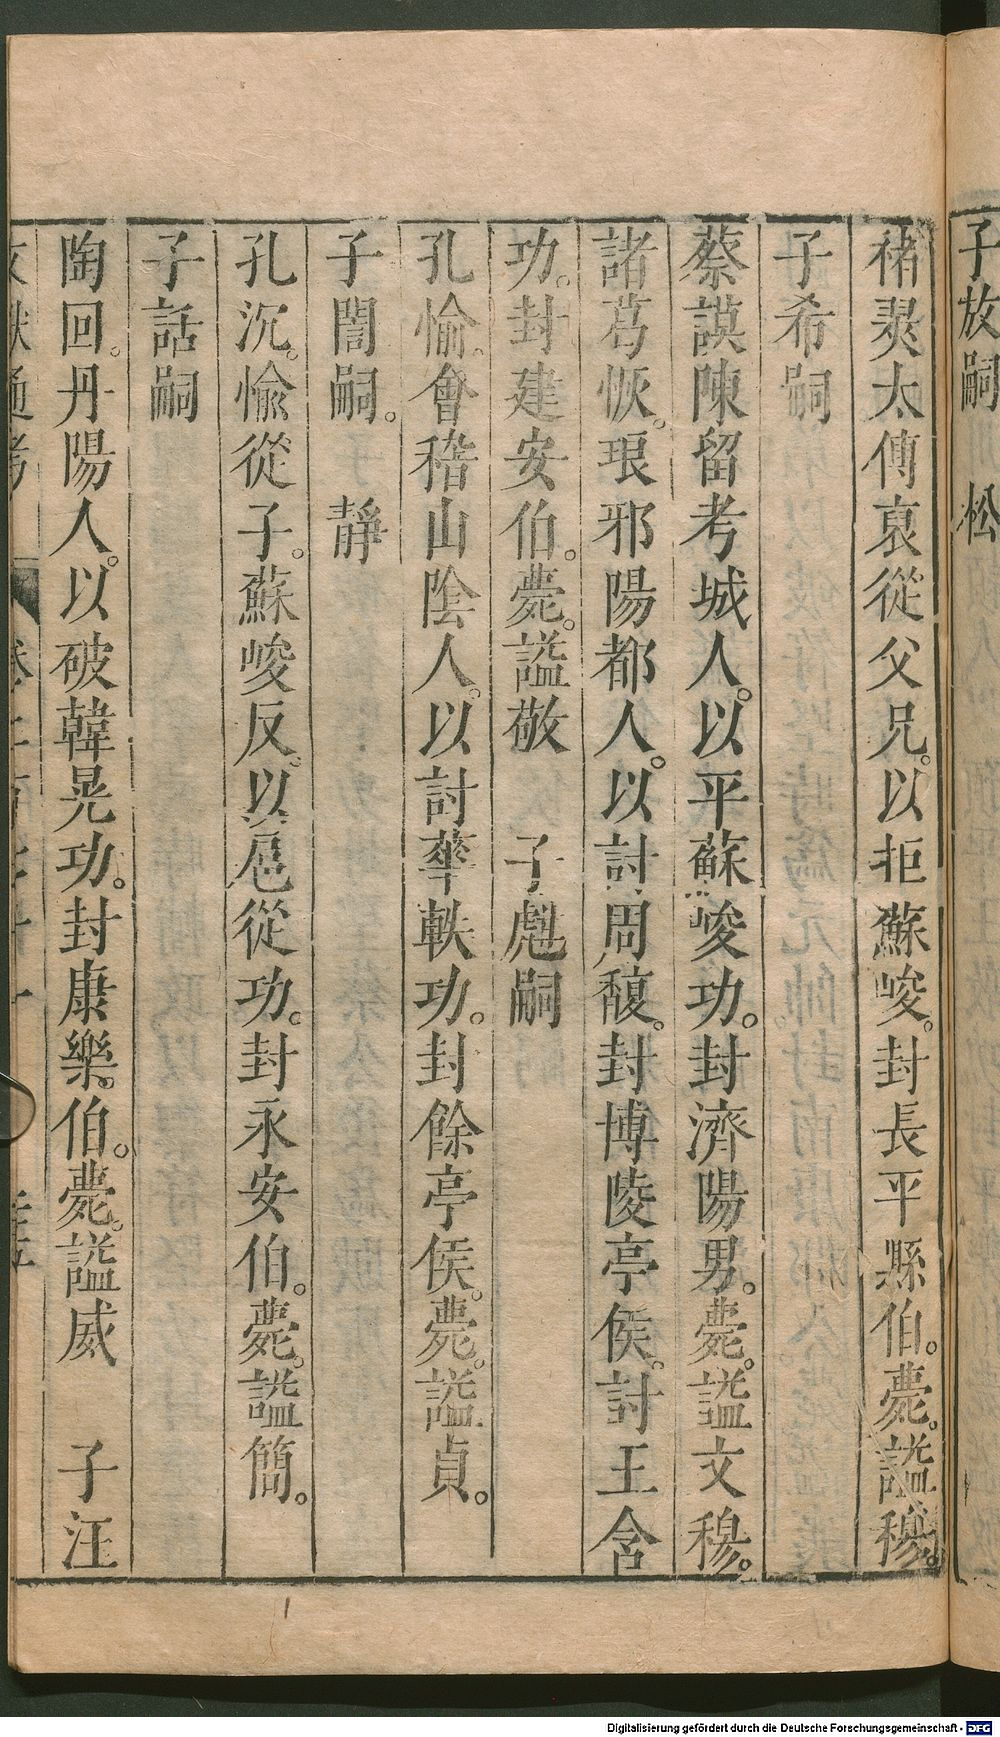 子放嗣　松
褚䂮太傅裒從父兄。以拒蘇峻。封長平縣伯。薨。謚穆。
子希嗣
蔡謨陳留考城人。以平蘇峻功。封濟陽男。薨。謚文穆。
諸葛恢。琅邪陽都人。以討周馥。封博陵亭侯。討王含
功。封建安伯。薨。謚敬　子彪嗣
孔愉。會稽山陰人。以討華軼功。封餘亭侯。薨。謚貞。
子誾嗣。　靜
孔沉。愉從子。蘇峻反。以扈從功。封永安伯。薨。謚簡。
子話嗣
陶回。丹陽人。以破韓晃功。封康樂。伯。薨。謚威　子汪
文獻通考
Digitalisierung gefördert durch die Deutsche Forschungsgemeinschaft - DFG